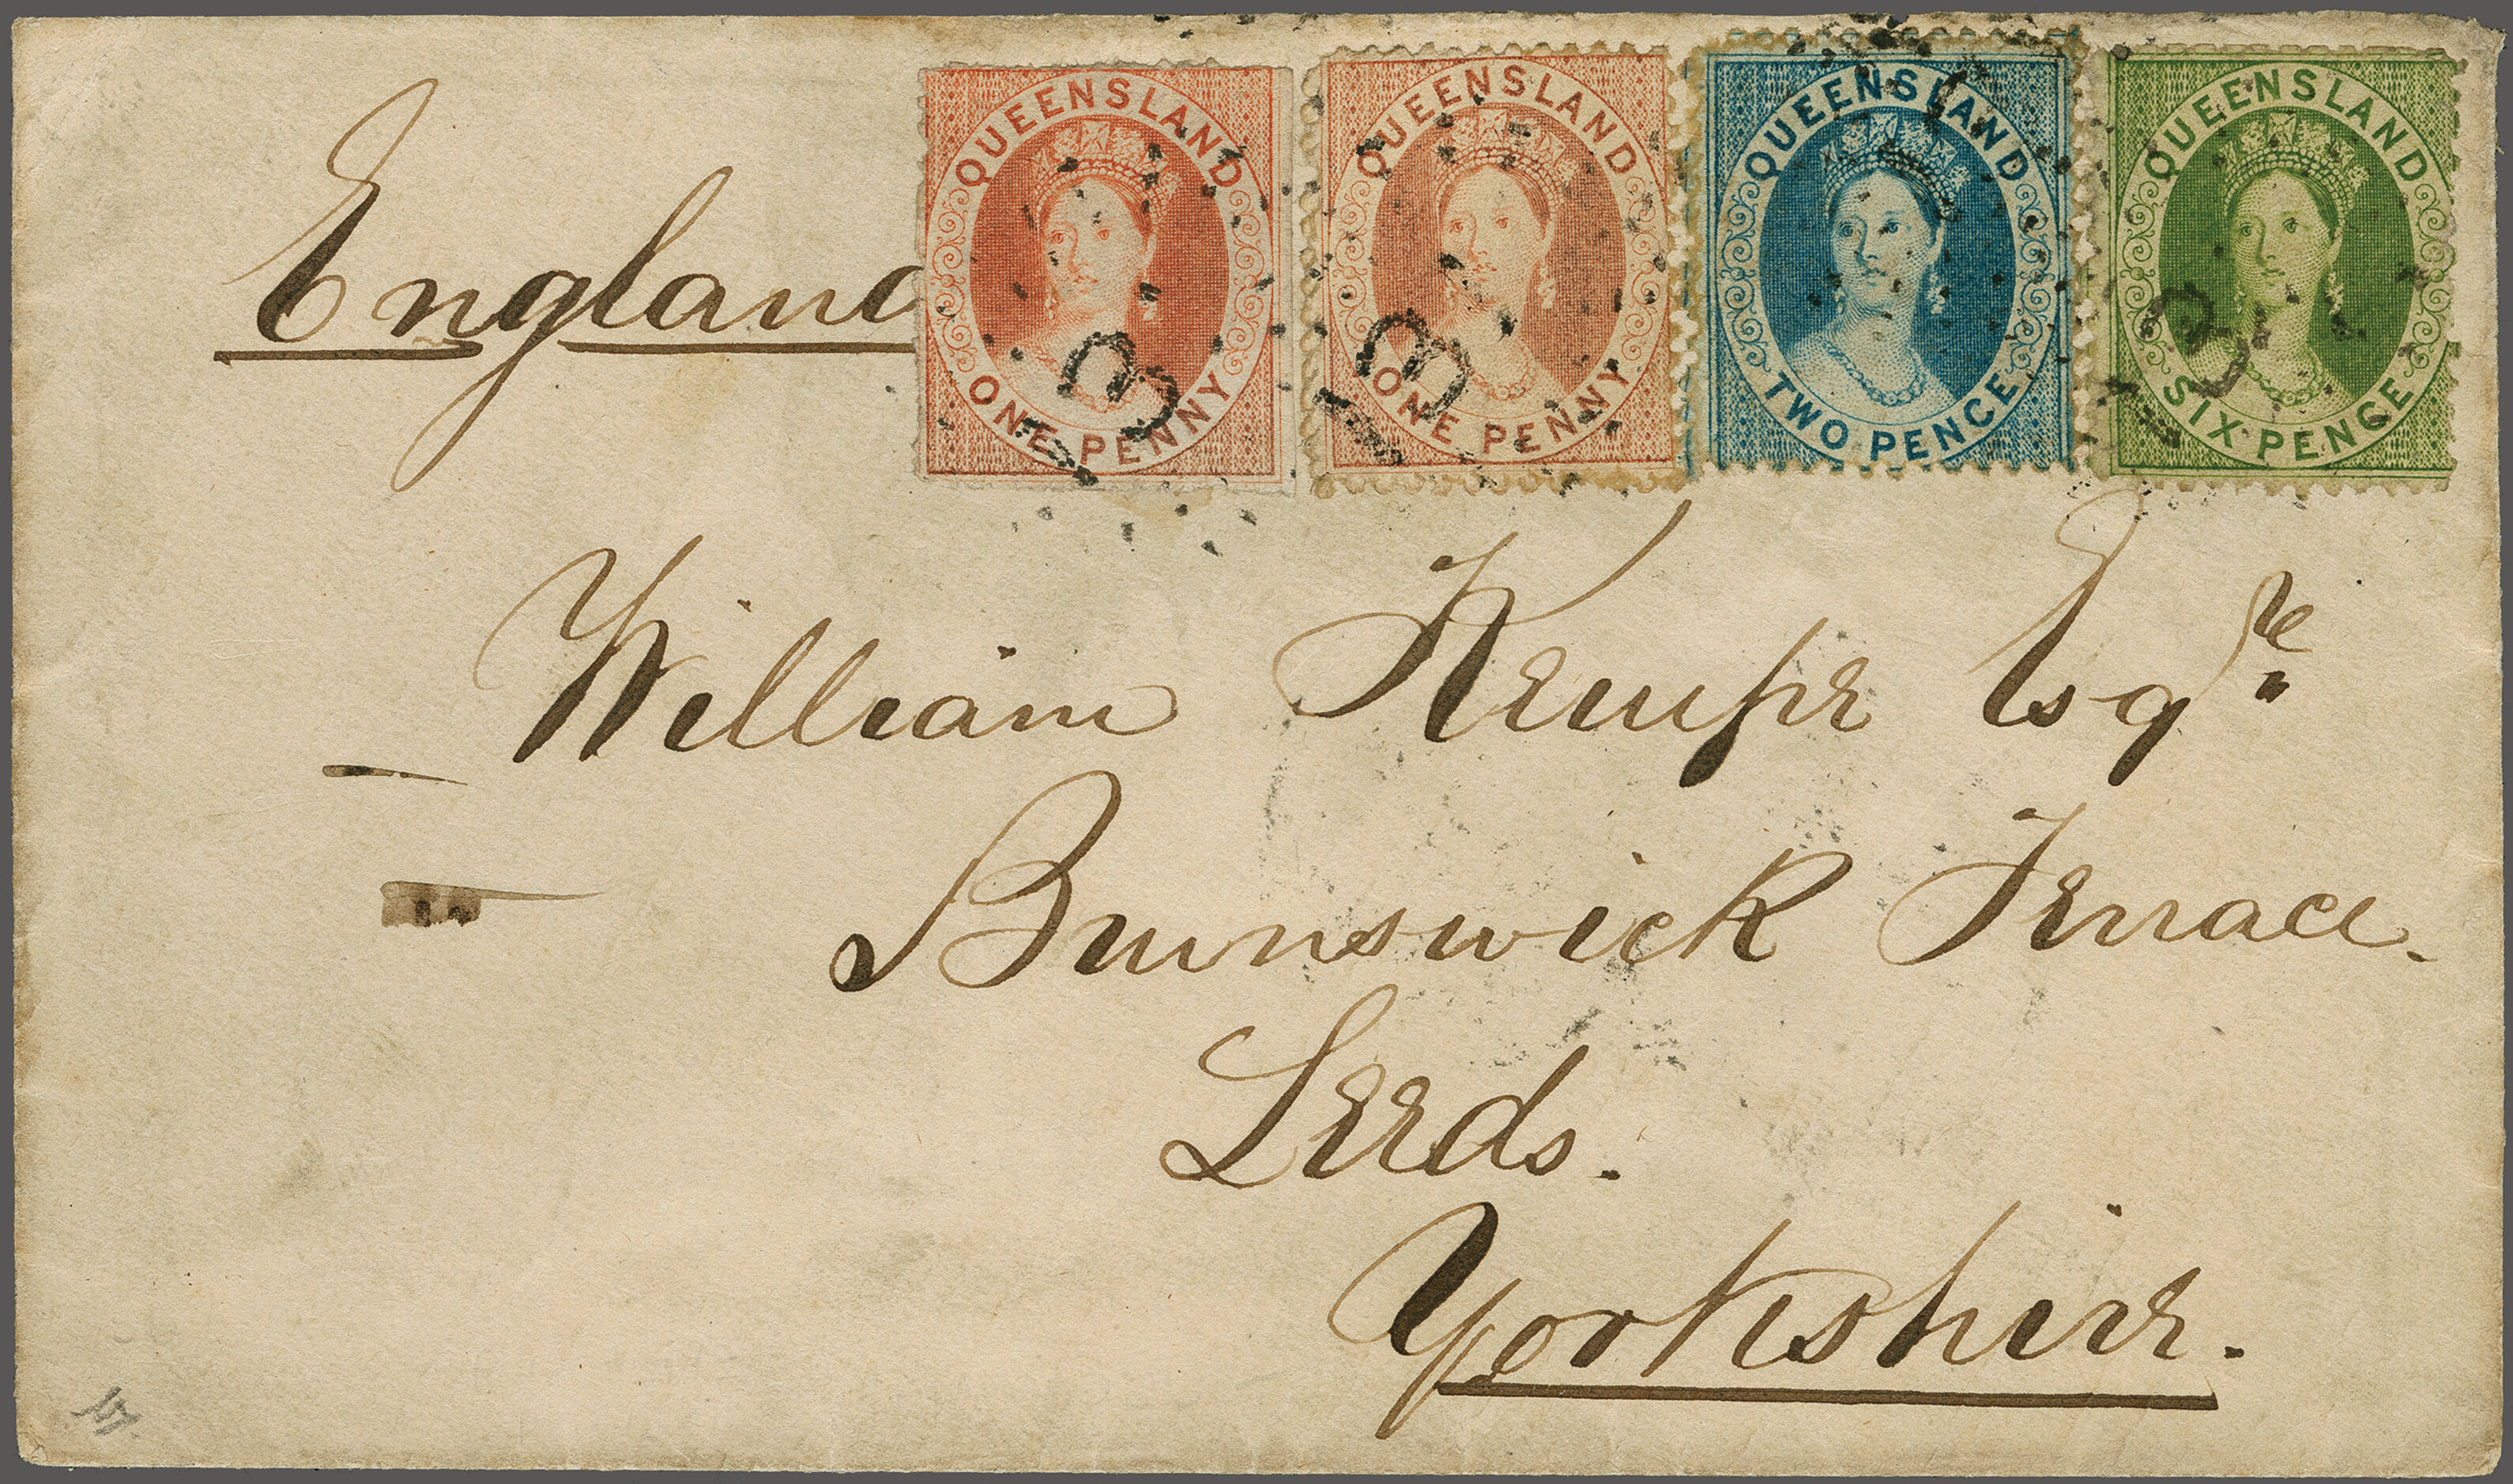 England
QUEENSLAND
ONE PENNY
QUEENSLAND
ONE PENNY
QUEENSLAND
TWO PENCE
QUEENSLAND
SIX PENCE
William Kempe Esqre
Brunswick Terrace.
Leeds.
Yorkshire.